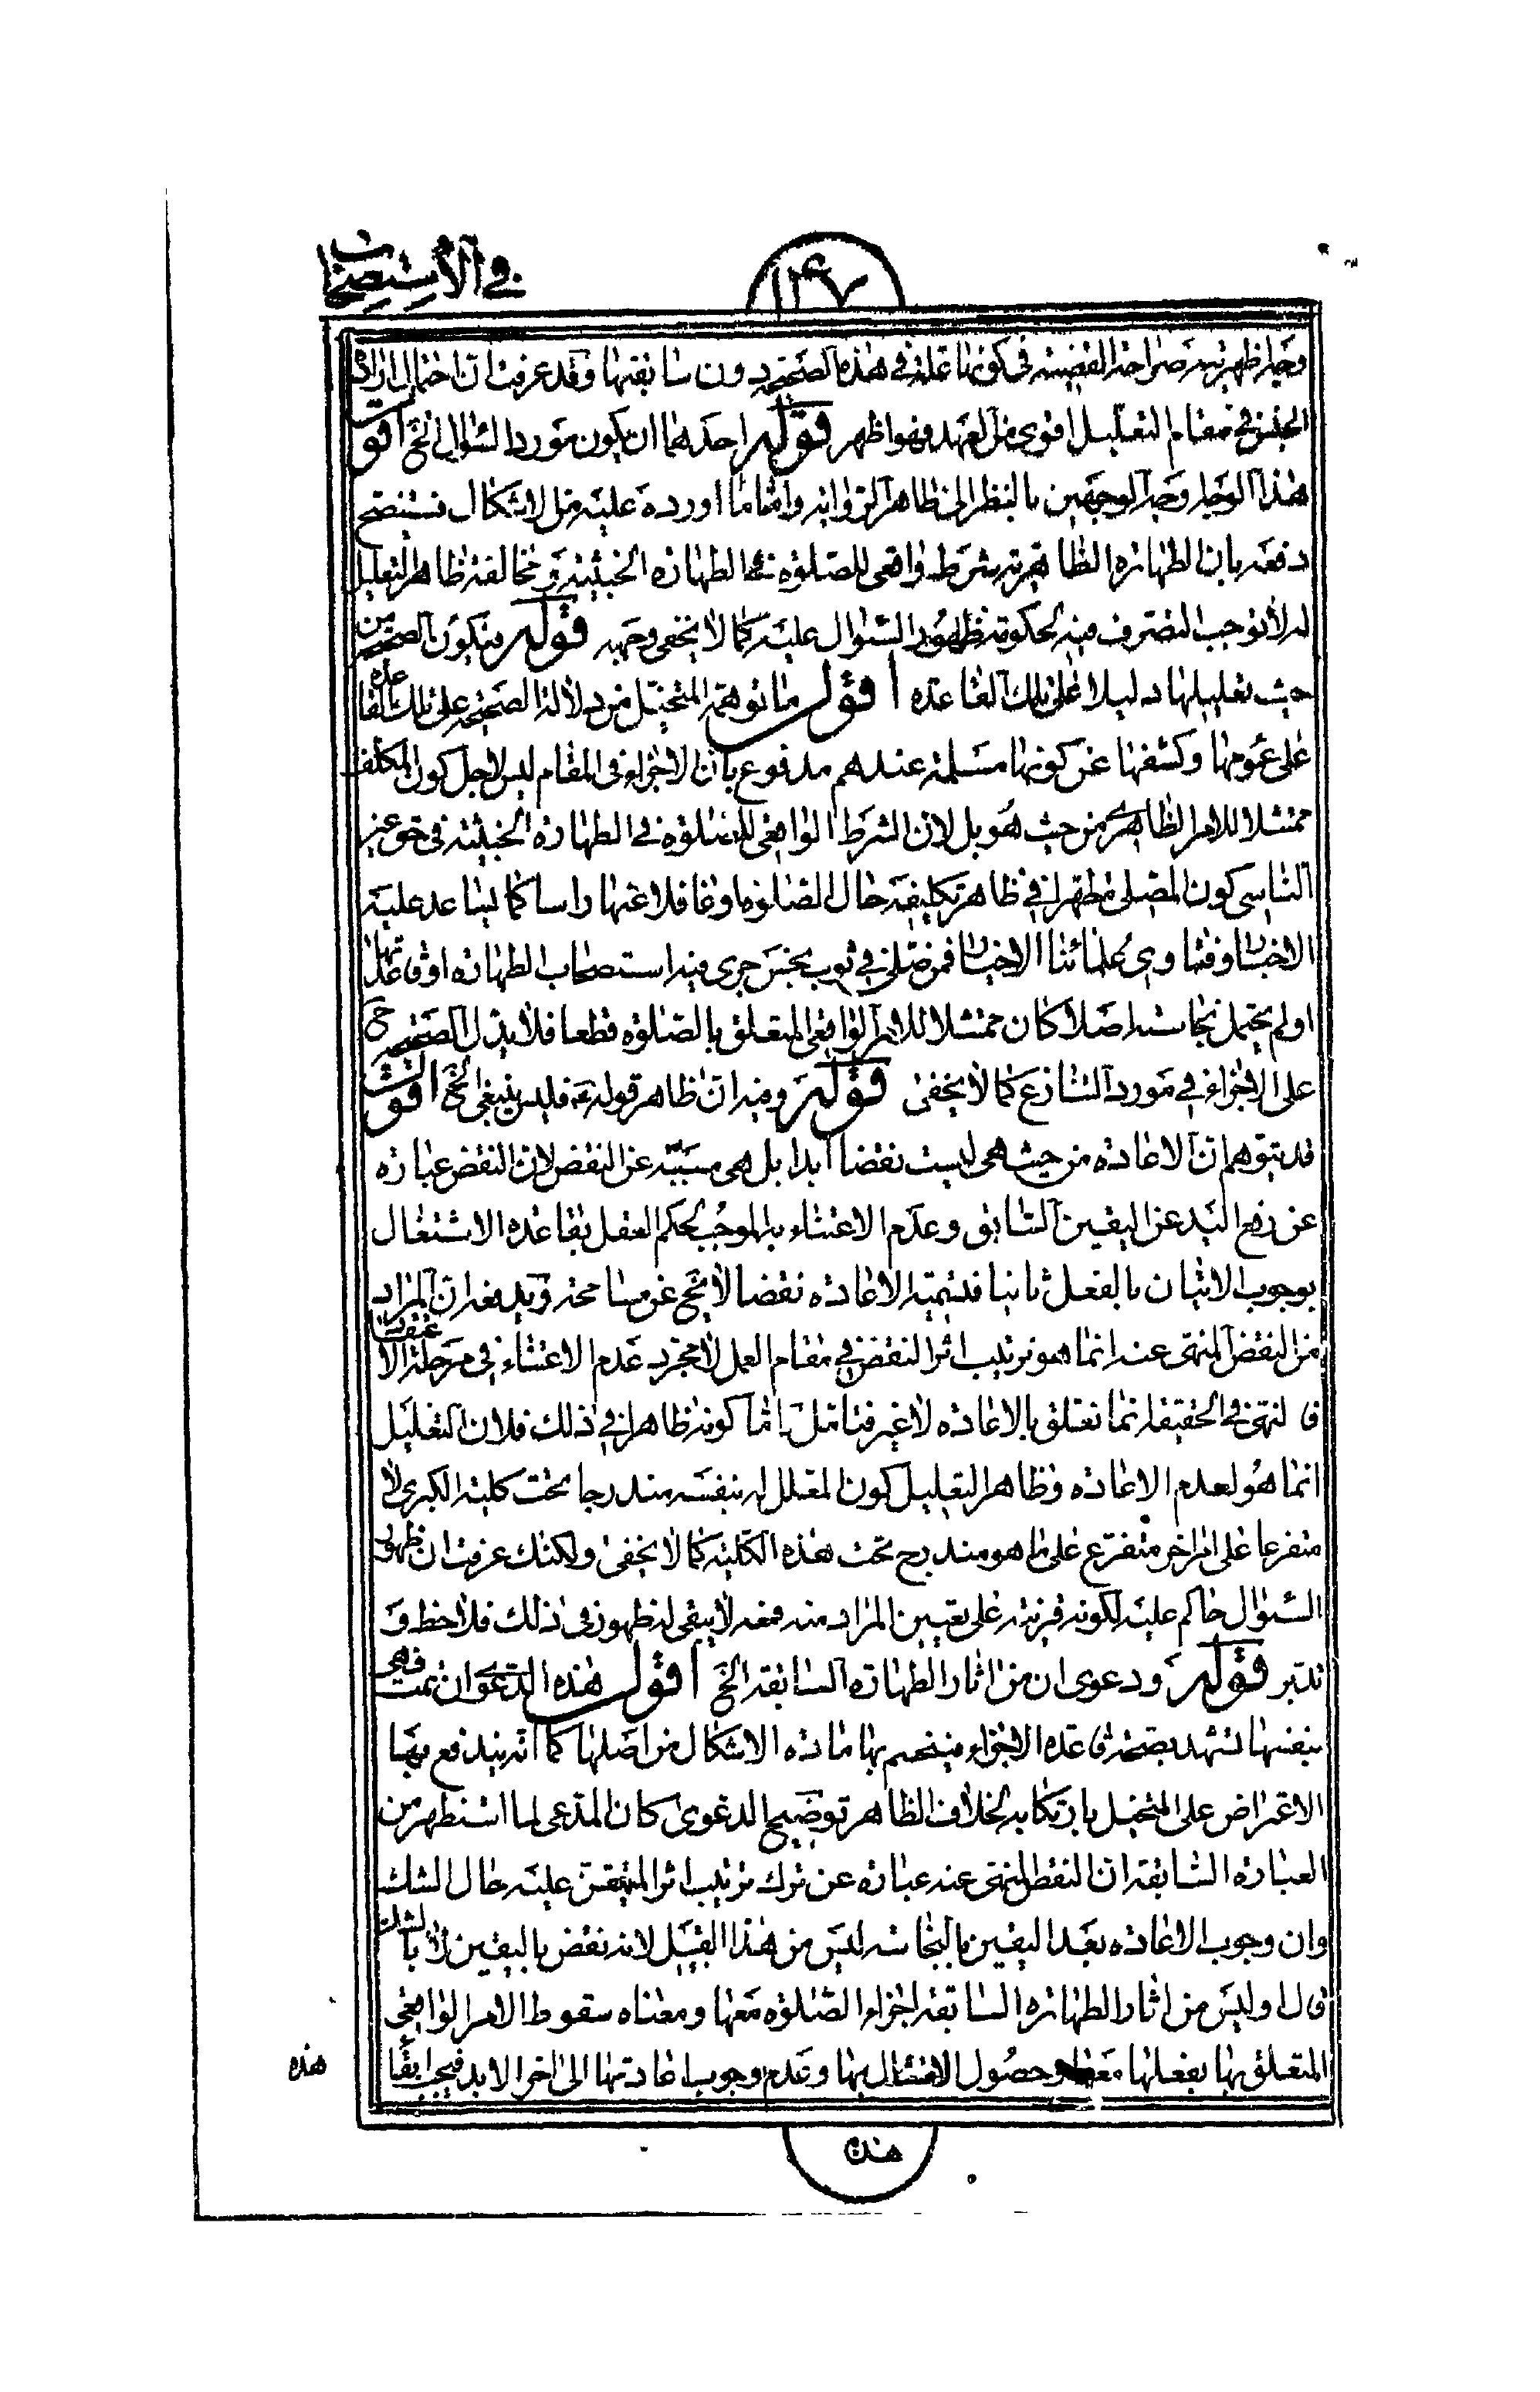 في الاستصحاب
۱۴۷
وجه اظهريته صراحة القضية في كونها علة في هذه الصحيحة دون سابقتها وقد عرفت ان احتمال ارادة
الجنس في مقام التعليل اقوى من العهد فهو اظهر قوله احدهما ان يكون مورد السؤال الخ اقول
هذا الوجه اوجه الوجهين بالنظر الى ظاهر الرواية واما ما اورده عليه من الاشكال فستنضح
دفعه بان الطهارة الظاهرية شرط واقعي للصلوة في الطهارة الخبثية ومخالفة ظاهر التعليل
له لا توجب التصرف فيه لحكومة ظهور السؤال عليه كما لا يخفى وجهه قوله فيكون الصحيحة من
حيث تعليلها دليلا على تلك القاعدة اقول ما توهمه المتخيل من دلالة الصحيحة على تلك القاعدة
على عمومها وكشفها عن كونها مسلمة عندهم مدفوع بان الاجزاء في المقام ليس لاجل كون المكلف
ممتثلا للامر الظاهري من حيث هو بل لان الشرط الواقعي للصلوة في الطهارة الخبثية في حق غير
الناسي كون المصلي متطهرا في ظاهر تكليفه حال الصلوة او غافلا عنها راسا كما يساعد عليه
الاخبار وفتاوى علمائنا الاخيار فمن صلى في ثوب نجس جرى فيه استصحاب الطهارة او قاعدتها
او لم يحتمل نجاسته اصلا كان ممتثلا للامر الواقعي المتعلق بالصلوة قطعا فلا يدل الصحيحة ح
على الاجزاء في مورد التنازع كما لا يخفى قوله وفيه ان ظاهر قوله ع فليس ينبغي الخ اقول
قد يتوهم ان الاعادة من حيث هي ليست نقضا ابدا بل هي مسببة عن النقض لان النقض عبارة
عن رفع اليد عن اليقين السابق وعدم الاعتناء به الموجب لحكم العقل بقاعدة الاشتغال
بوجوب الاتيان بالفعل ثانيا فتسمية الاعادة نقضا لا يخ عن مسامحة ويدفعه ان المراد
من النقض المنهي عنه انما هو ترتيب اثر النقض في مقام العمل لا مجرد عدم الاعتناء في مرحلة الاعتقاد
فالنهي في الحقيقة انما تعلق بالاعادة لا غير فتامل اما كونه ظاهرا في ذلك فلان التعليل
انما هو لعدم الاعادة وظاهر التعليل كون المعلل له بنفسه مندرجا تحت كلية الكبرى لا
متفرعا على امر اخر متفرع على ما هو مندرج تحت هذه الكلية كما لا يخفى ولكنك عرفت ان ظهور
السؤال حاكم عليه لكونه قرينة على تعيين المراد منه فمعه لا يبقى له ظهور في ذلك فلاحظ و
تدبر قوله ودعوى ان من اثار الطهارة السابقة الخ اقول هذه الدعوى ان تمت فهي
بنفسها تشهد بصحة قاعدة الاجزاء فينحسم بها مادة الاشكال من اصلها كما انه يندفع بها
الاعتراض على المتخيل بارتكابه لخلاف الظاهر توضيح الدعوى كان المدعي لما استظهر من
العبارة السابقة ان النقض المنهي عنه عبارة عن ترك ترتيب اثر المتيقن عليه حال الشك
وان وجوب الاعادة بعد اليقين بالنجاسة ليس من هذا القبيل لانه نقض باليقين لا بالشك
قال اوليس من اثار الطهارة السابقة اجزاء الصلوة معها ومعناه سقوط الامر الواقعي
المتعلق بها بفعلها معها وحصول الامتثال بها وعدم وجوب اعادتها الى اخر الابد فيجب ابقاء
هذه
هذه